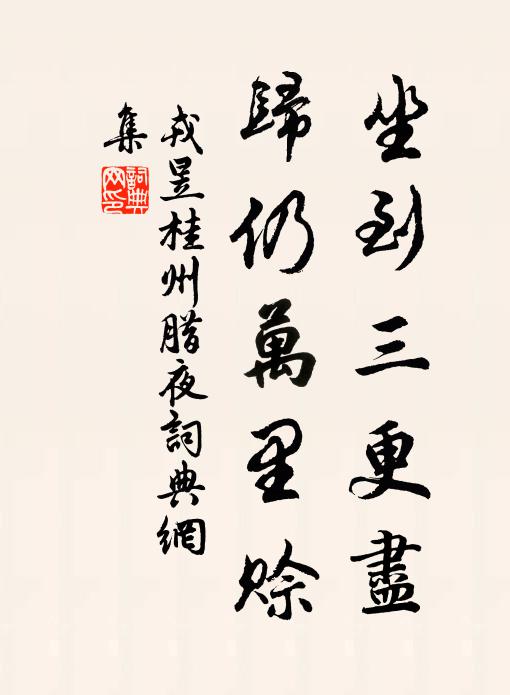 坐到三更盡
歸仍萬里賒
戎昱桂州腊夜詞典網
集
詞典
网印